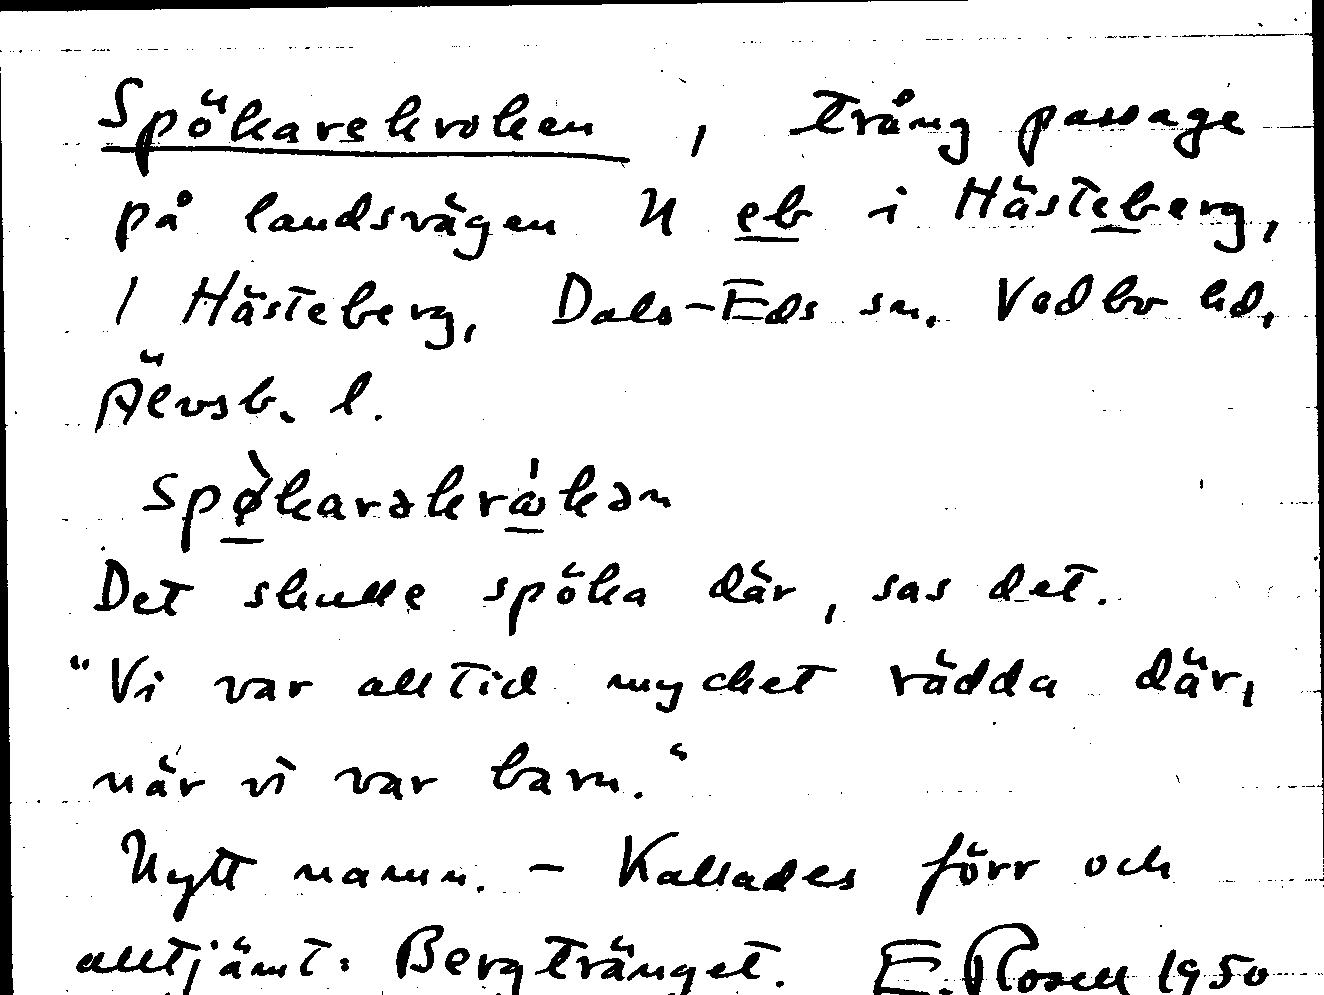 Spökarekroken, trång passage
på landsvägen N eb i Hästeberg,
1 Hästeberg, Dals-Eds sn. Vedbo hd,
Älvsb. l.
spø̀karəkrǻkən
Det skulle spöka där, sas det.
"Vi var alltid mycket rädda där,
när vi var barn."
Nytt namn. - Kallades förr och
alltjämt: Bergtränget. E. Rosell 1950